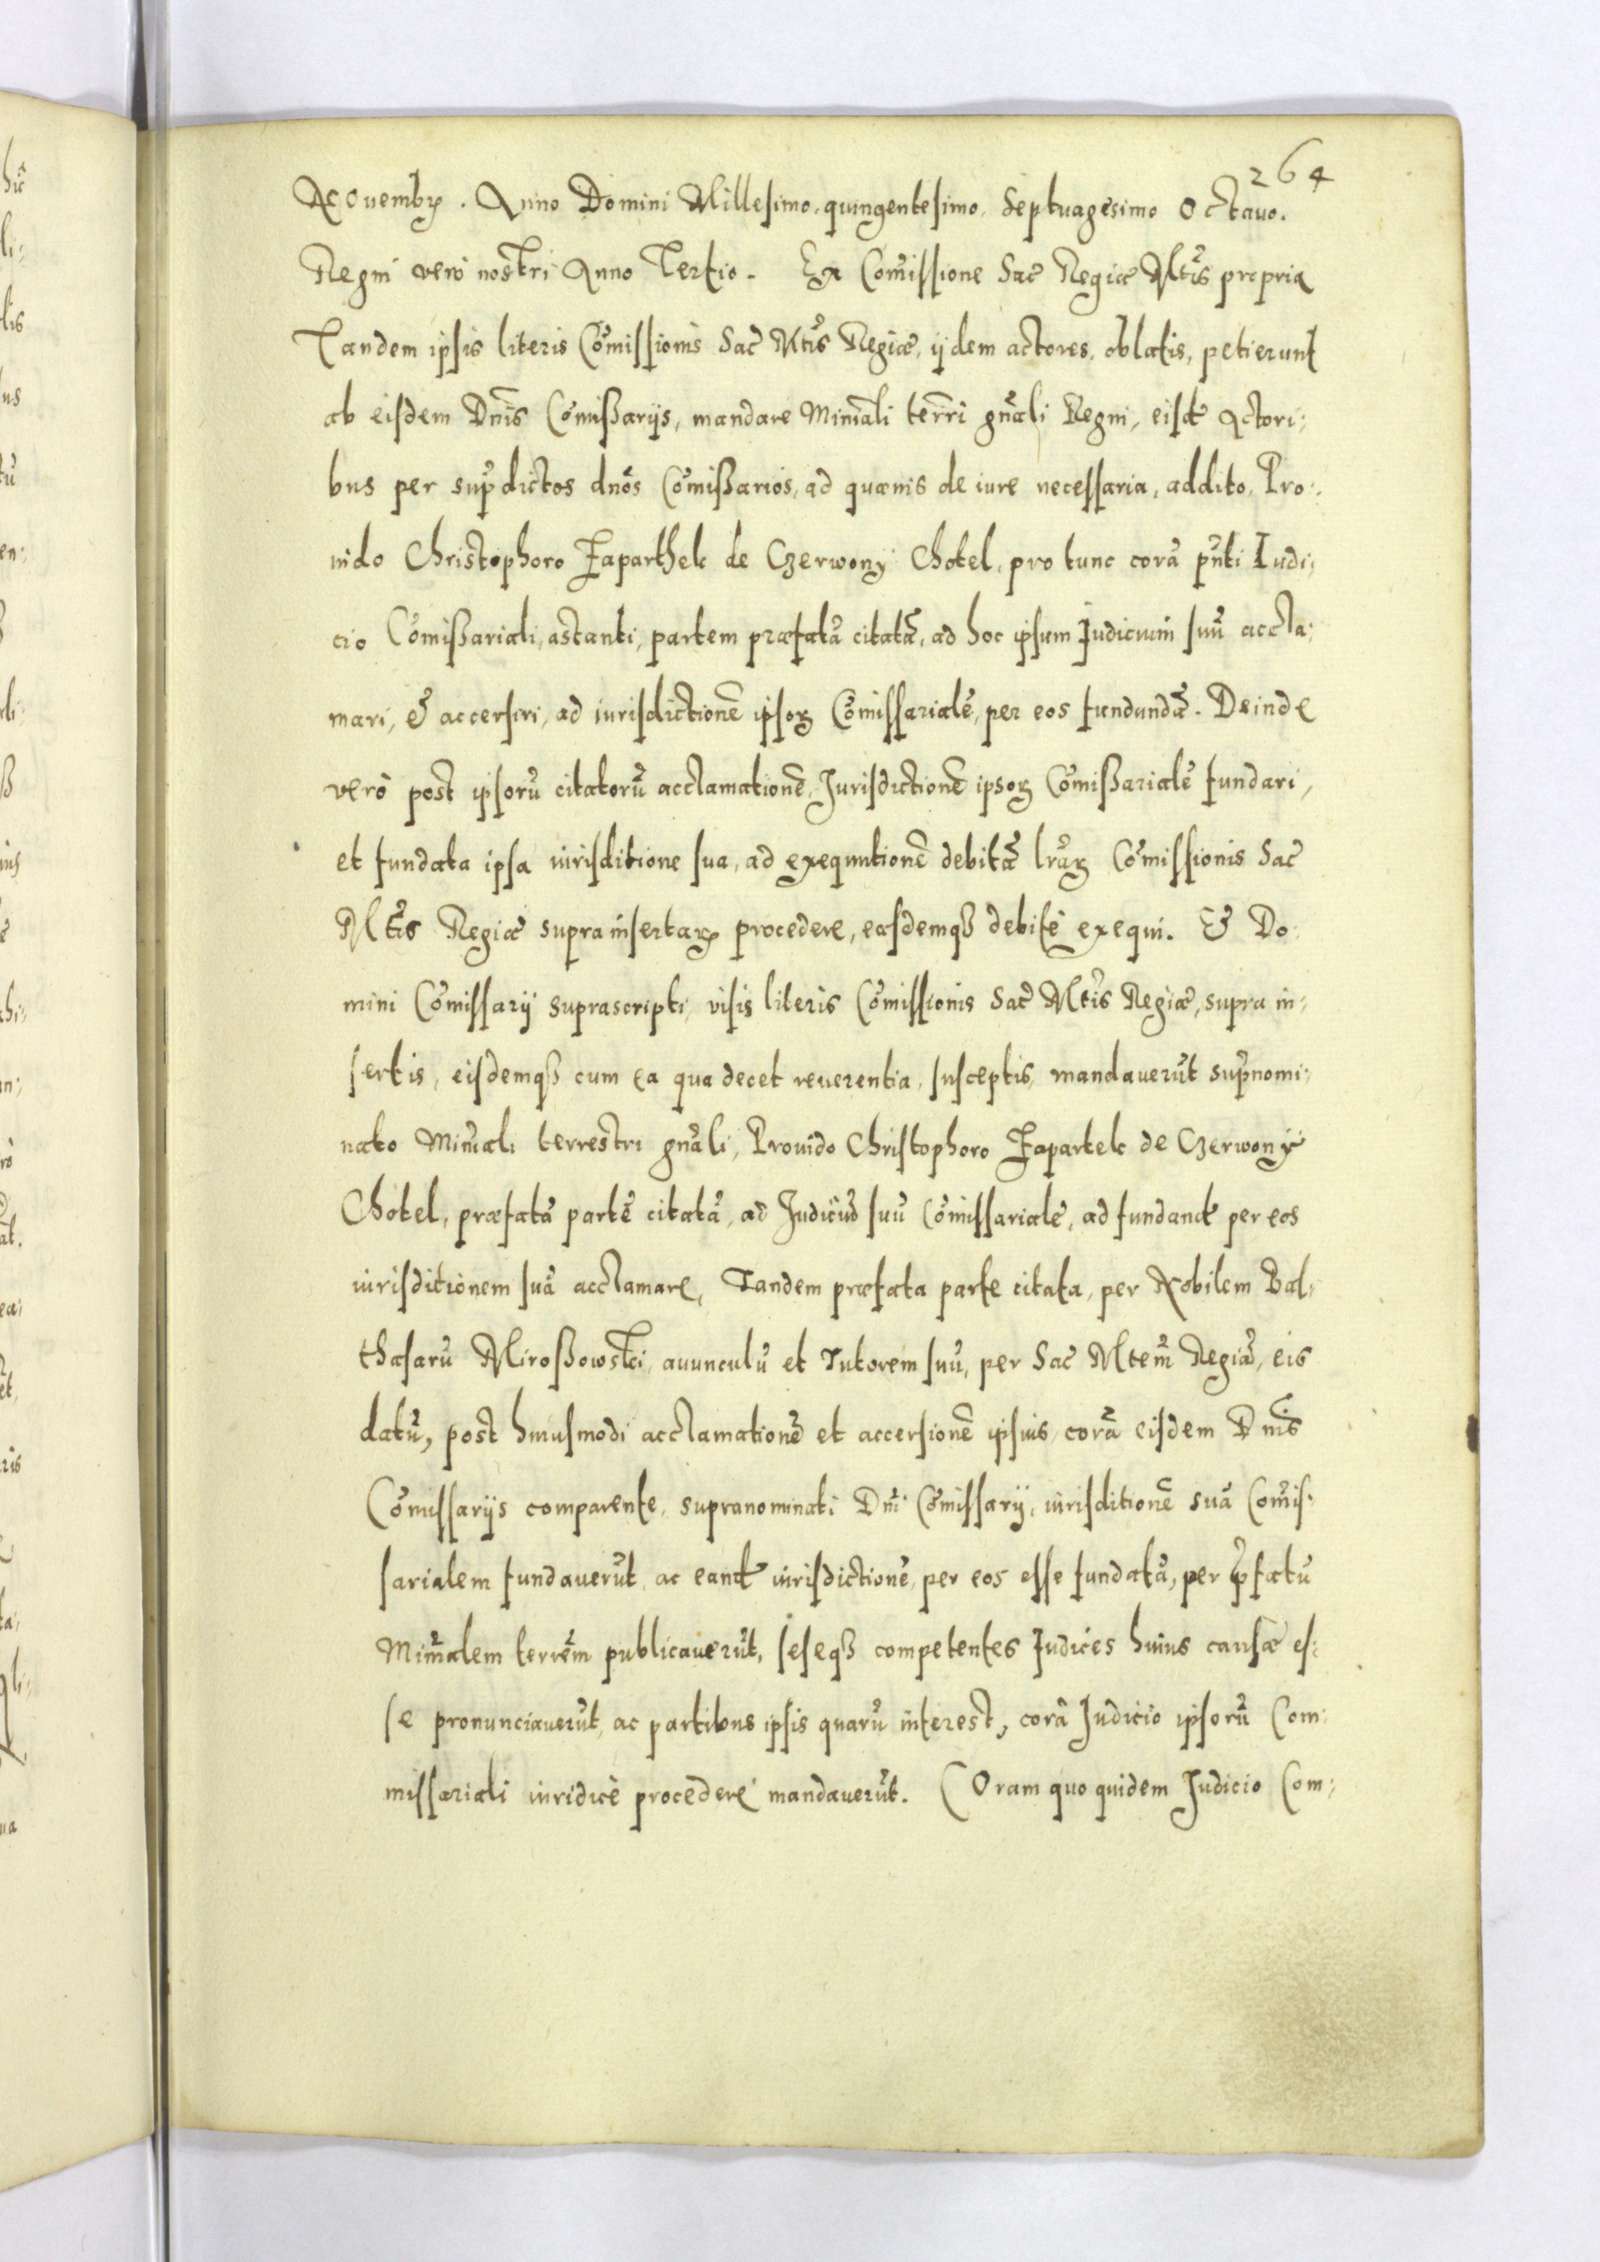 264
Nouembr. Anno Domini Millesimo, quingentesimo, Septuagesimo Octauo.
Regni vero nostri Anno Tertio. Ex Com̃issione Sac̃ Regiæ Mt̃is propria
Tandem ipsis literis Com̃issionis Sac̃ Mt̃is Regiæ, ijdem actores, oblatis, petierunt
ab eisdem Dn̄is Com̃ißarijs, mandare Minr̃ali terr̃i gñali Regni, eisd̃ Actori:
bus per sup̃dictos dños Com̃ißarios, ad quænis de iure necessaria, addito, Pro:
uido Christophoro Faparthek de Czerwony Chotel, pro tunc corã pñti Iudi:
cio Com̃ißariali, astanti, partem præfatã citatã, ad hoc ipsum Iudicium suũ accla:
mari, & accersiri, ad iurisdictionẽ ipsoꝝ Com̃issarialẽ, per eos fundandã. Deinde
verò post ipsorũ citatorũ acclamationẽ, Jurisdictionẽ ipsoꝝ Com̃ißarialẽ fundari,
et fundata ipsa iurisditione sua, ad exequutionẽ debitã lr̃aꝝ Com̃issionis Sac̃
Mt̃is Regiæ supra insertaꝝ procedere, easdemqꝫ debitè exequi. & Do:
mini Com̃issarij suprascripti, visis literis Com̃issionis Sac̃ Mt̃is Regiæ, supra in:
sertis, eisdemqꝫ cum ea qua decet reuerentia, susceptis, mandauerũt sup̃nomi:
nato Minr̃ali terrestri gñali, Prouido Christophoro Fapartek de Czerwony
Chotel, præfatã partẽ citatã, ad Judiciũ suũ Com̃issarialẽ, ad fundand̃ per eos
iurisditionem suã acclamare, Tandem præfata parte citata, per Nobilem Bal:
thasarũ Miroßowski, auunculũ et Tutorem suũ, per Sac̃ Mtem̃ Regiã, eis
datũ, post huiusmodi acclamationẽ et accersionẽ ipsius, corã eisdem Dñis
Com̃issarijs comparente, supranominati Dñi Com̃issarij, iurisditionẽ suã Com̃is:
sarialem fundauerũt, ac eand̃ iurisdictionẽ, per eos esse fundatã, per p̃fatũ
Minr̃alem terrẽm publicauerũt, seseqꝫ competentes Iudices huius causæ es:
se pronunciauerũt, ac partibus ipsis quarũ interest, corã Judicio ipsorũ Com:
missariali iuridicè procedere mandauerũt. Coram quo quidem Judicio Com: